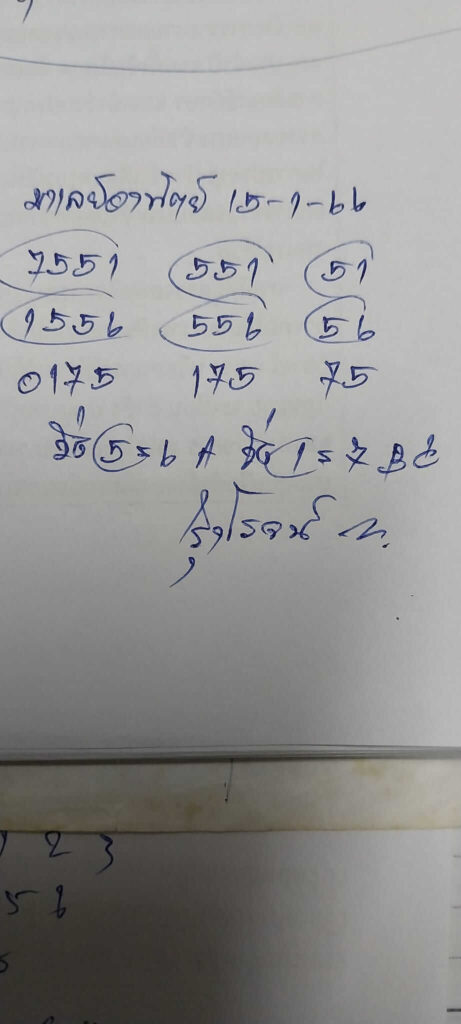 มาเลย์อาทิตย์ 15-1-66
7551 551 51
1556 556 56
0175 175 75
วิ่ง 5=6 A วิ่ง 1=7 B C
รุ่งโรจน์ ท.
1 2 3
56